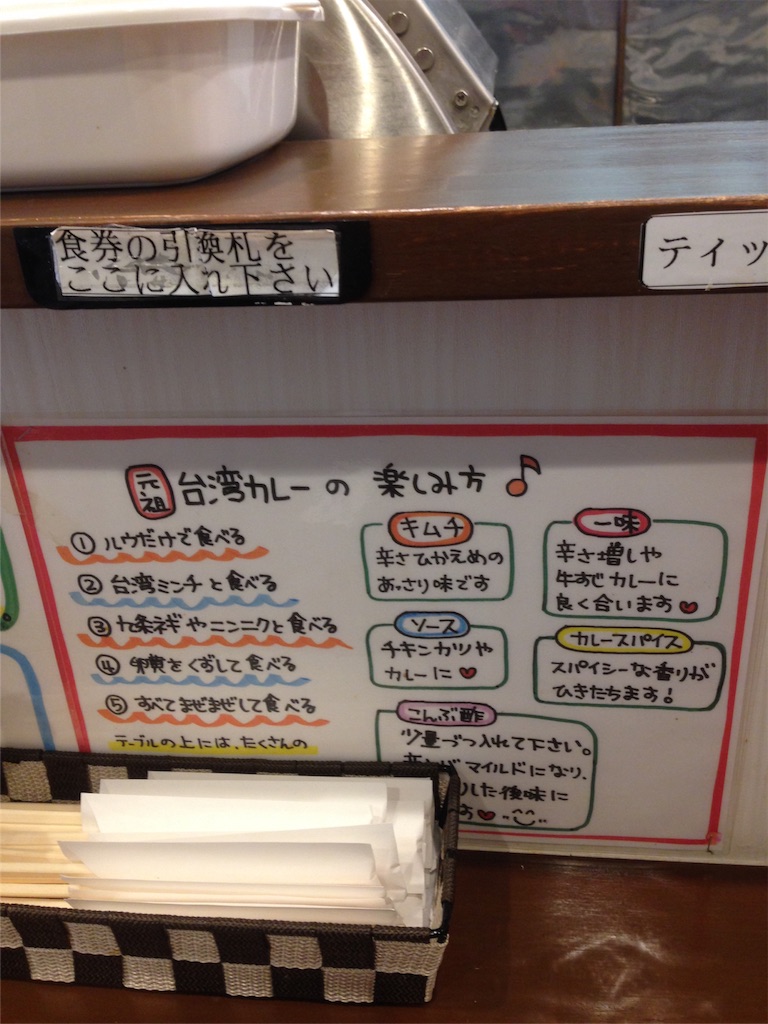 食券の引換札を
ここに入れ下さい
ティッ
元祖 台湾カレーの 楽しみ方
① ルウだけで食べる
② 台湾ミンチと食べる
③ 九条ネギやニンニクと食べる
④ 卵黄をくずして食べる
⑤ すべてまぜまぜして食べる
テーブルの上には、たくさんの
キムチ
辛さひかえめの
あっさり味です
ソース
チキンカツや
カレーに
こんぶ酢
少量づつ入れて下さい。
マイルドになり、
した後味に
す
一味
辛さ増しや
牛すじカレーに
良く合います
カレースパイス
スパイシーな香りが
ひきたちます!